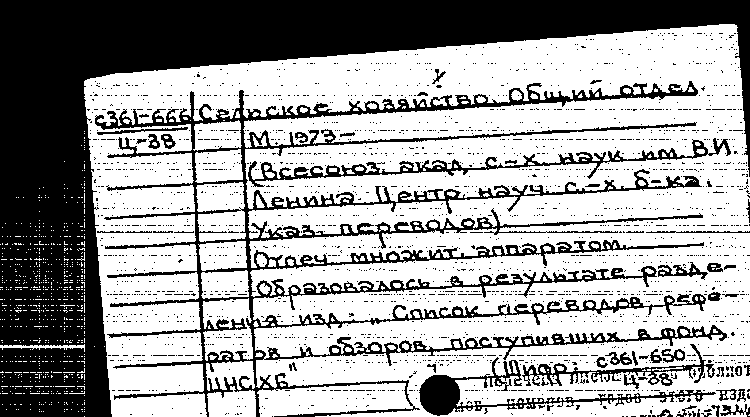 с361-666 Сельское хозяйство. Общий отдел.
Ц-38 М., 1973-
(Всесоюз. акад. с.-х. наук им. В.И.
Ленина Центр. науч. с.-х. б-ка.
Указ. переводов).
Отпеч. множит. аппаратом.
Образовалось в результате разде-
ления изд.: „Список переводов, рефе-
ратов и обзоров, поступивших в фонд.
ЦНСХБ" (Шифр: с361-650
Ц-38 ).
номеров, годов этого изд